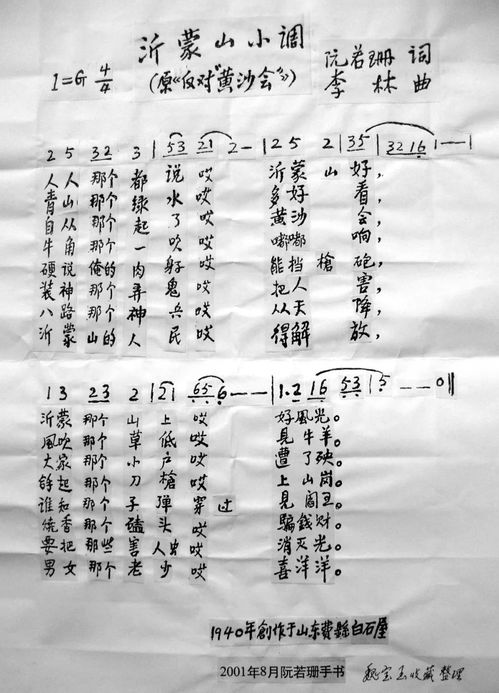 沂蒙山小调
(原《反对"黄沙会"》)
1=G 4/4
阮若珊 词
李林 曲
2 5 32 3 | 53 21 2- | 2 5 2 | 35 | 32 16 | - - |
人人 那个 都 说 哎 沂蒙 山 好,
青山 那个 绿 水 哎 多好 看,
自从 那个 起 了 哎 黄沙 会,
牛角 那个 一 吹 哎 嘟嘟 响,
硬说 俺的 肉 身 哎 能挡 槍 砲,
装神 那个 弄 鬼 哎 把人 害,
八路 那个 神 兵 哎 从天 降,
沂蒙 山的 人 民 哎 得解 放,
1 3 23 2 | 21 65 6 - - | 1.2 16 53 | 5 - - 0 ||
沂蒙 那个 山 上 哎 好風光。
風吹 那个 草 低 哎 見牛羊。
大家 那个 小 户 哎 遭了殃。
起 那个 刀 槍 哎 上山岗。
谁知 那个 子 弹 穿 过 見阎王。
烧香 那个 磕 头 哎 騙錢财。
要把 那些 害 人虫 哎 消灭光。
男女 那个 老 少 哎 喜洋洋。
1940年創作于山东费縣白石屋
2001年8月阮若珊手书 魏宝玉收藏整理